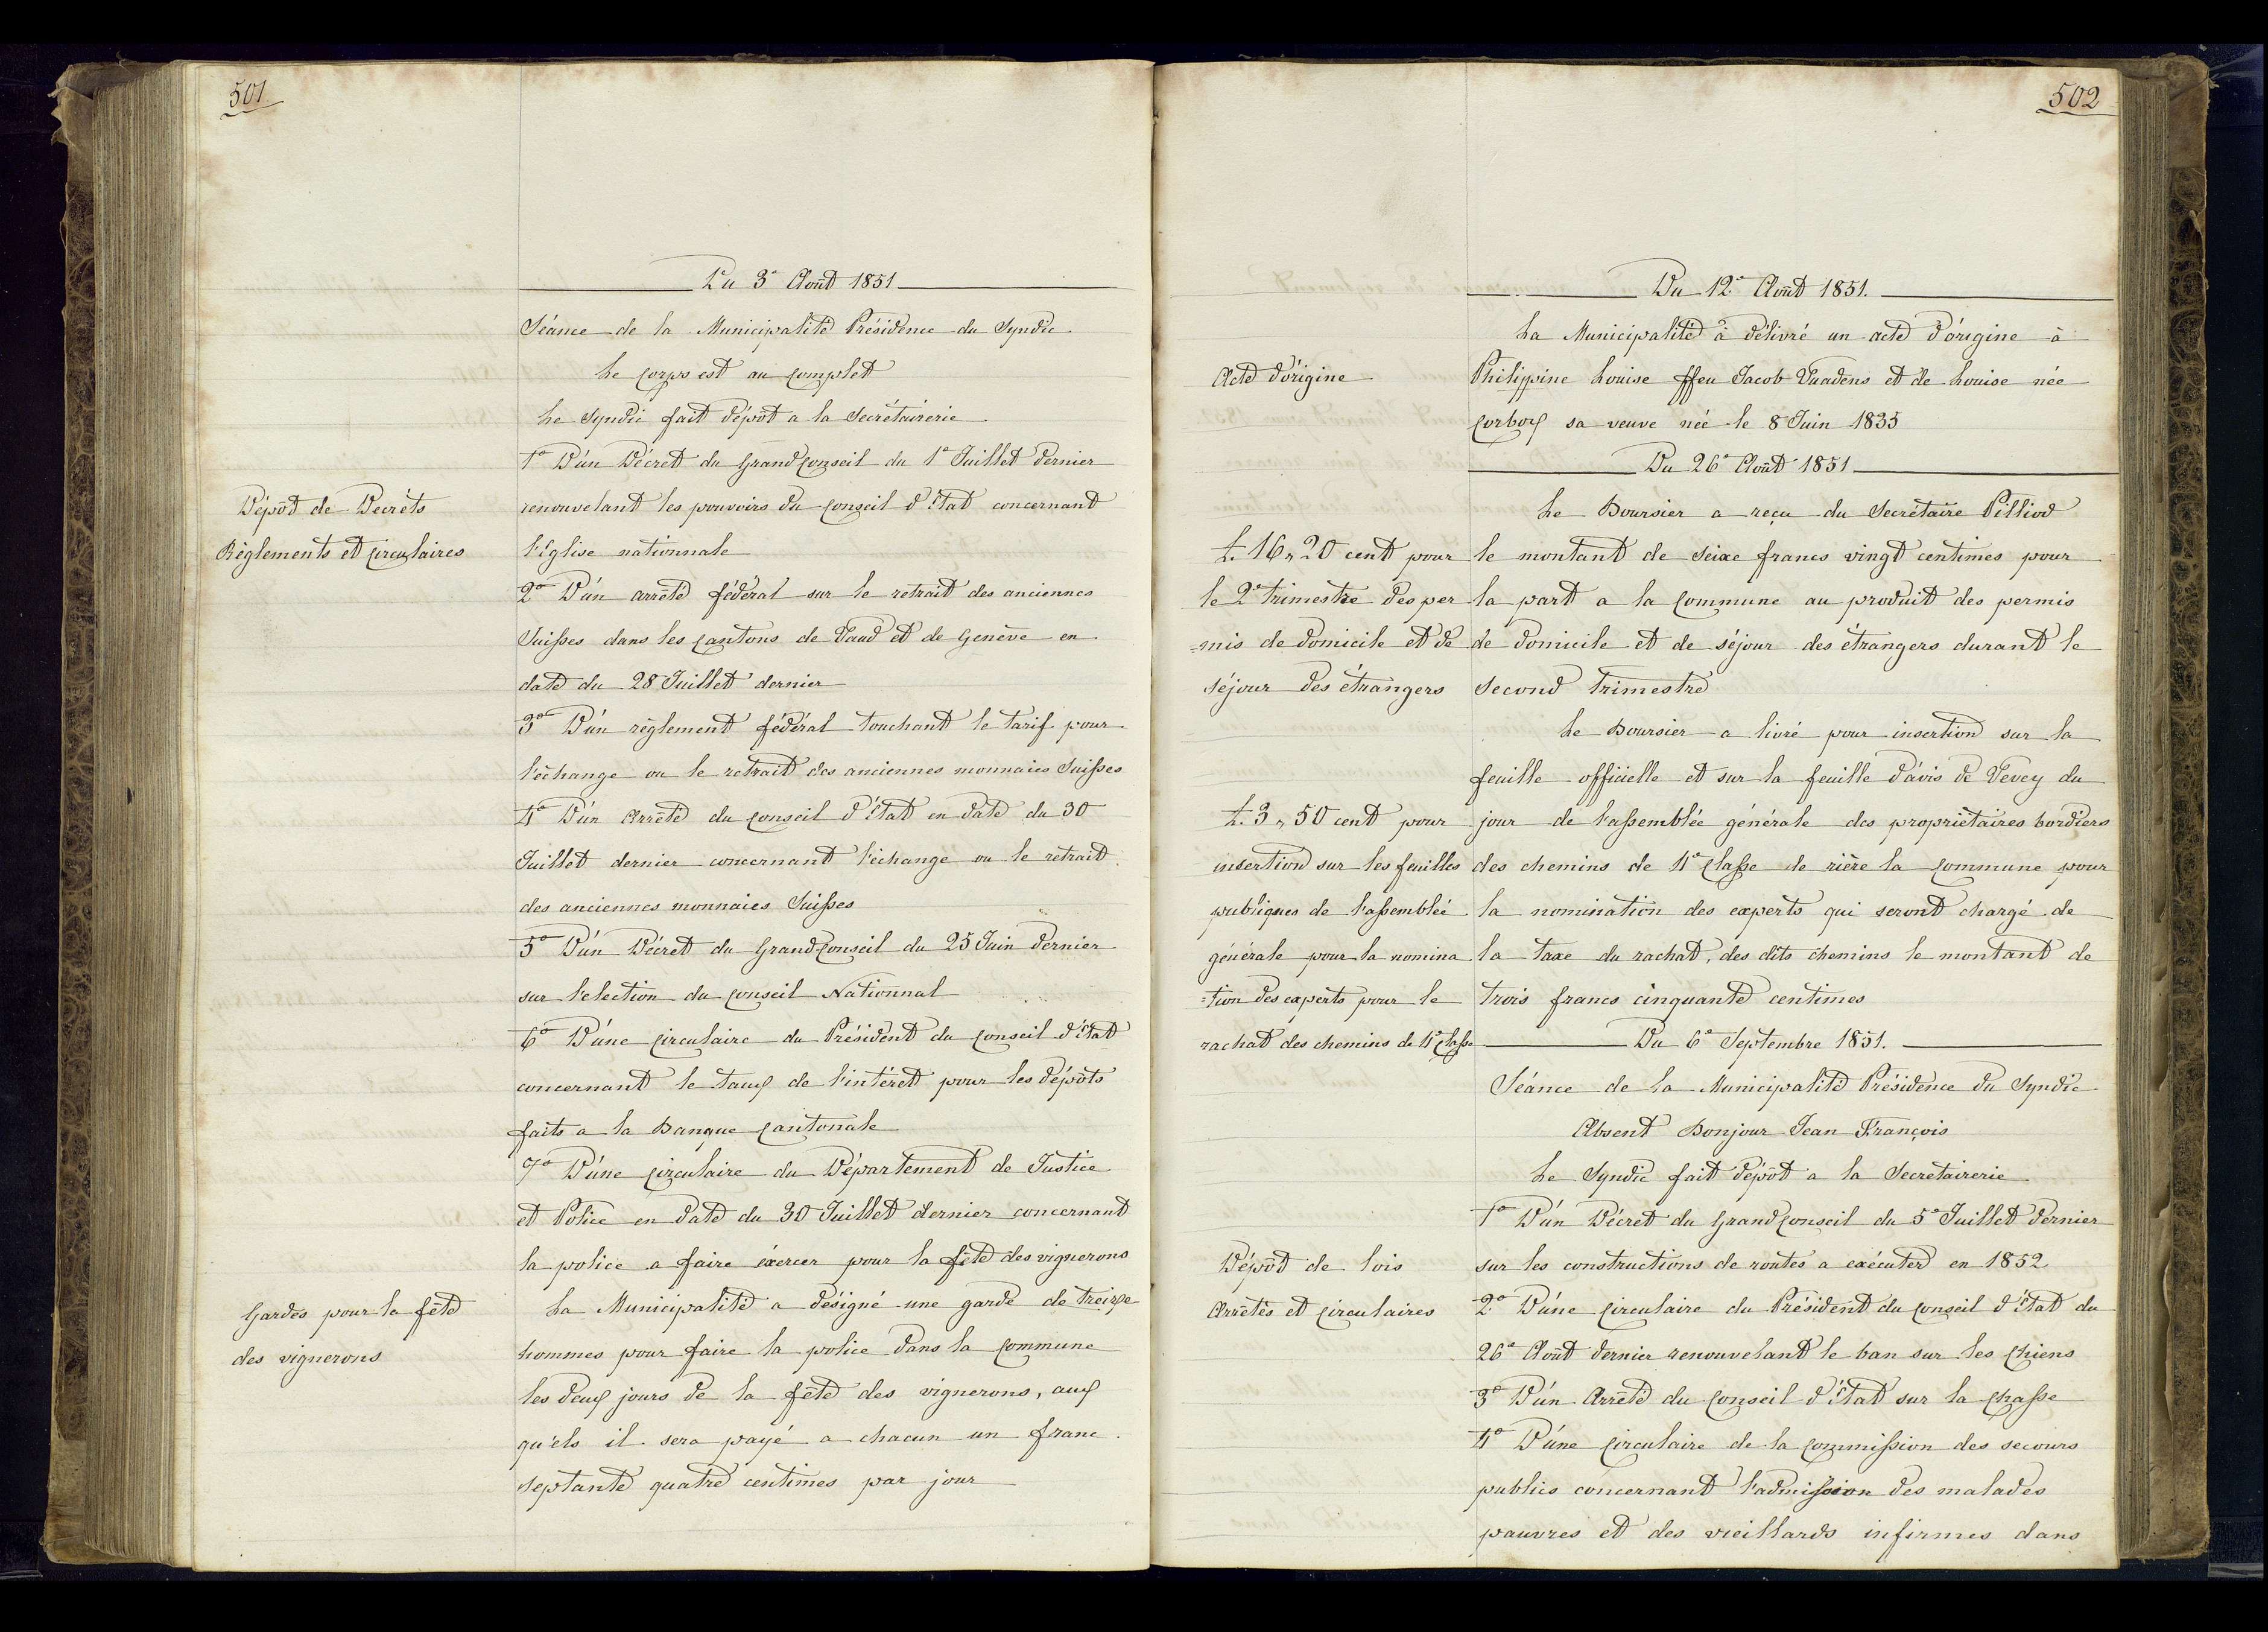 501.
Du 3e Août 1851
Séance de la Municipalité Présidence du Syndic
Le Corps est au Complet
Le Syndic fait dépôt a la Secrétairerie
1o D'un Décret du Grand Conseil du 1e Juillet dernier
Dépôt de Decrèts
renouvelant les pouvoirs du Conseil d'Etat concernant
Règlements et Circulaires
l'Eglise nationnale
2o D'un arrêté fédéral sur le retrait des anciennes
Suisses dans les Cantons de Vaud et de Genève en
date du 28 Juillet dernier
3o D'un règlement fédéral touchant le tarif pour
l'échange ou le retrait des anciennes monnaies Suisses
4o D'un Arrêté du Conseil d'Etat en date du 30
Juillet dernier concernant l'échange ou le retrait
des anciennes monnaies Suisses
5o D'un Décret du Grand Conseil du 25 Juin dernier
sur l'election du Conseil Nationnal
6o D'une Circulaire du Président du Conseil d'Etat
concernant le taux de l'intéret pour les dépôts
faits a la Banque Cantonale
7o D'une Circulaire du Département de Justice
et Police en date du 30 Juillet dernier concernant
la police a faire éxercer pour la fête des vignerons
Gardes pour la fête
La Municipalité a désigné une garde de treize
des vignerons
hommes pour faire la police dans la Commune
les deux jours de la fête des vignerons, aux
qu'els il sera payé a chacun un franc
septante quatre centimes par jour
502
Du 12e Août 1851.
La Municipalité à délivré un acte d'origine à
Acte d'origine
Philippine Louise ffeu Jacob Vuadens et de Louise née
Corboz sa veuve née le 8 Juin 1835
Du 26e Août 1851
Le Boursier a reçu du Secrétaire Pilliod
L. 16,, 20 cent pour
le montant de Seixe francs vingt centimes pour
le 2e trimestre des per
la part a la Commune au produit des permis
=mis de domicile et de
de domicile et de séjour des étrangers durant le
séjour des étrangers
second trimestre
Le Boursier a livré pour insertion sur la
feuille officielle et sur la feuille d'avis de Vevey du
L. 3,, 50 cent pour
jour de l'assemblée générale des propriétaires bordiers
insertion sur les feuilles
des chemins de 4e Classe de rière la Commune pour
publiques de l'assemblée
la nomination des experts qui seront chargé de
générale pour la nomina
la taxe du rachat, des dits chemins le montant de
=tion des experts pour le
trois francs cinquante centimes
rachat des chemins de 4e Classe
Du 6e Septembre 1851.
Séance de la Municipalité Présidence du Syndic
Absent Bonjour Jean François
Le Syndic fait dépôt a la Secrétairerie
1o D'un Décret du Grand Conseil du 5e Juillet dernier
Dépôt de lois
sur les constructions de routes a exécuter en 1852
Arrêtés et circulaires
2o D'une Circulaire du Président du Conseil d'Etat du
26e Août dernier renouvelant le ban sur les Chiens
3o D'un Arrêté du Conseil d'Etat sur la Chasse
4o D'une Circulaire de la Commission des secours
publics concernant l'admission des malades
pauvres et des vieillards infirmes dans